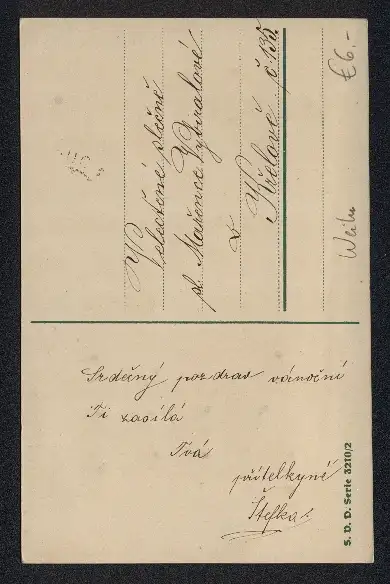 Velectěné slečně
sl. Mařence Vybíralové
v
Křelově č. 135.
€6.-
Srdečný pozdrav vánoční
Ti zasílá
Tvá
přítelkyně
Štefka
S. V. D. Serie 3210/2